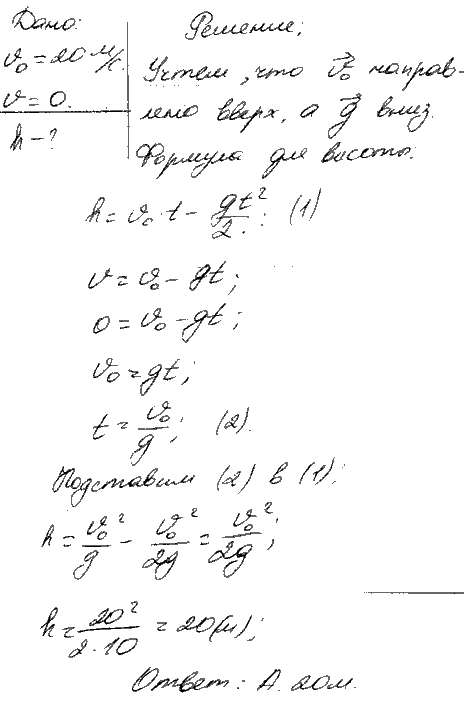 Дано:
v₀ = 20 м/с.
v = 0.
h – ?
Решение:
Учтем, что v⃗₀ направ-
лено вверх, а g⃗ вниз.
Формула для высоты:
h = v₀·t – gt²/2.; (1)
v = v₀ – gt;
0 = v₀ – gt;
v₀ = gt;
t = v₀/g; (2).
Подставим (2) в (1):
h = v₀²/g – v₀²/2g = v₀²/2g;
h = 20²/2·10 = 20(м);
Ответ: А. 20м.